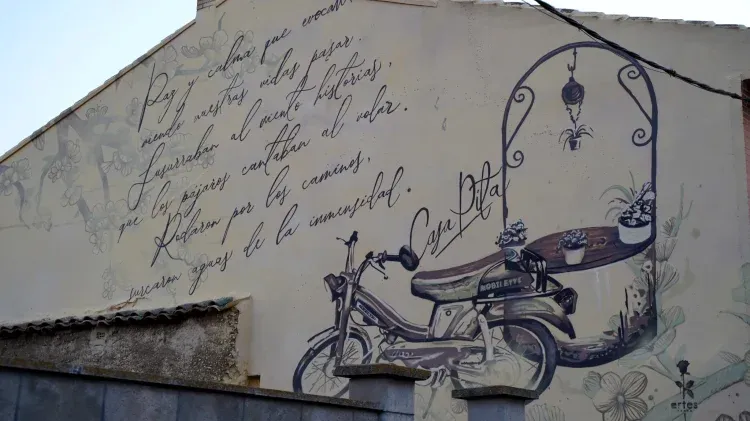 Paz y calma que evocan
viendo nuestras vidas pasar.
Susurraban al viento historias,
que los pájaros cantaban al volar.
Rodaron por los caminos,
surcaron aguas de la inmensidad.
Casa Pita
MOBILETTE
erres